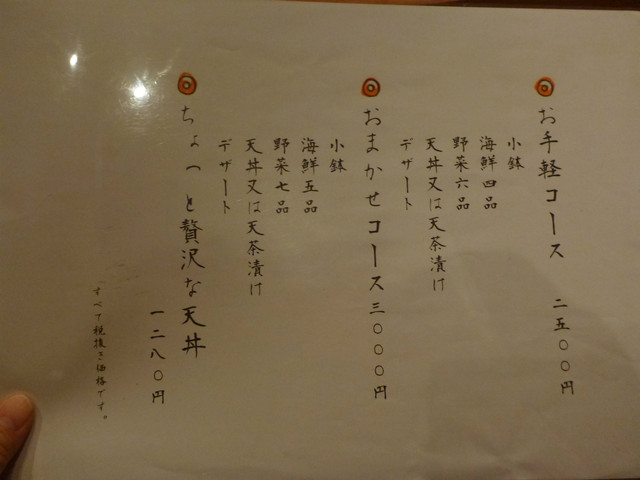 お手軽コース 二五〇〇円
小鉢
海鮮四品
野菜六品
天丼又は天茶漬け
デザート
おまかせコース 三〇〇〇円
小鉢
海鮮五品
野菜七品
天丼又は天茶漬け
デザート
ちょっと贅沢な天丼
一二八〇円
すべて税抜き価格です。